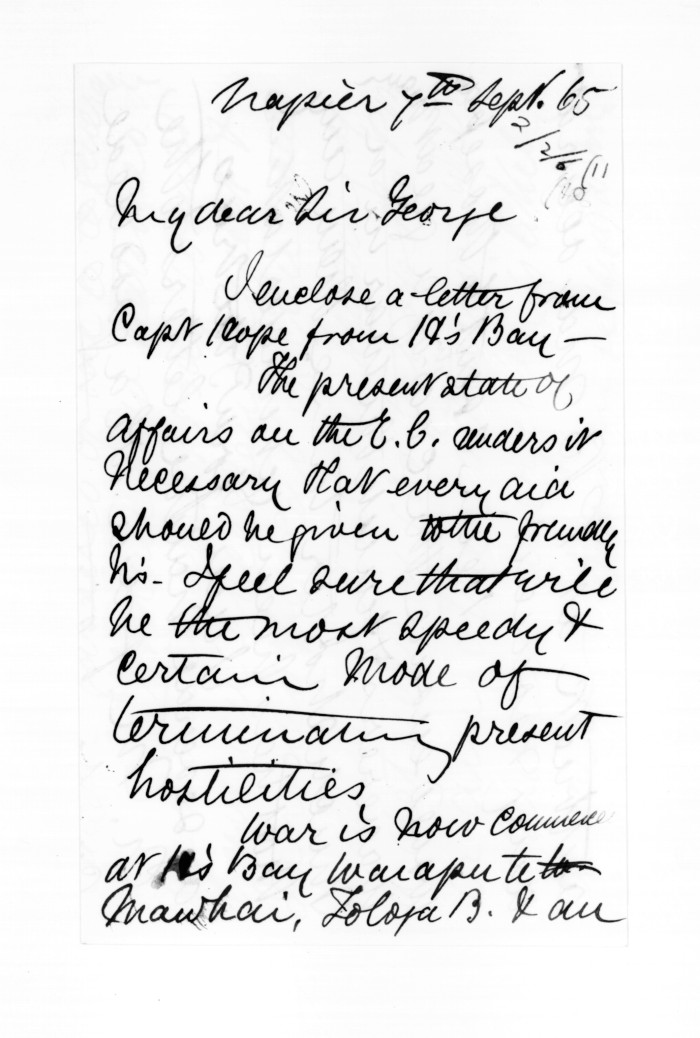 Napier 7th Sept. 65
My dear Sir George
I enclose a letter from
Capt Hope from H's Bay —
The present state of
affairs on the E. C. renders it
necessary that every aid
should be given to the friendly
N's - I feel sure that will
be the most speedy &
certain mode of
terminating present
hostilities
War is now commence
at H's Bay Waiaputeto
Mawhai, Tologa B. & an